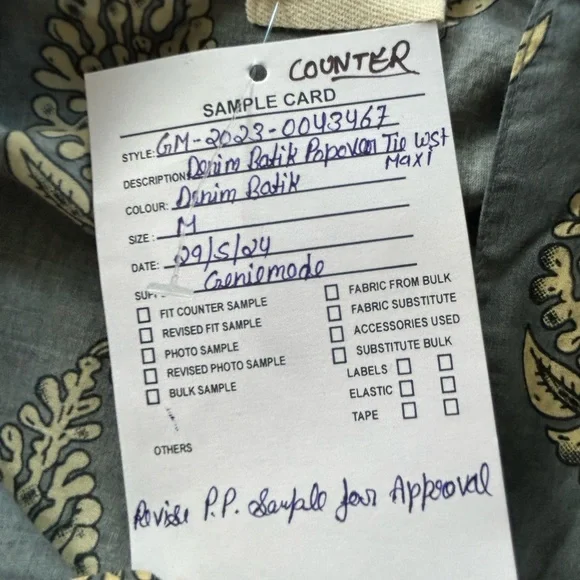 COUNTER
SAMPLE CARD
STYLE: GM-2023-0043467
DESCRIPTION: Denim Batik Popover Tie Wst
Maxi
COLOUR: Denim Batik
SIZE: M
DATE: 29/5/24
Geniemode
FIT COUNTER SAMPLE
REVISED FIT SAMPLE
PHOTO SAMPLE
REVISED PHOTO SAMPLE
BULK SAMPLE
FABRIC FROM BULK
FABRIC SUBSTITUTE
ACCESSORIES USED
SUBSTITUTE BULK
LABELS
ELASTIC
TAPE
OTHERS
Revise P.P. Sample for Approval